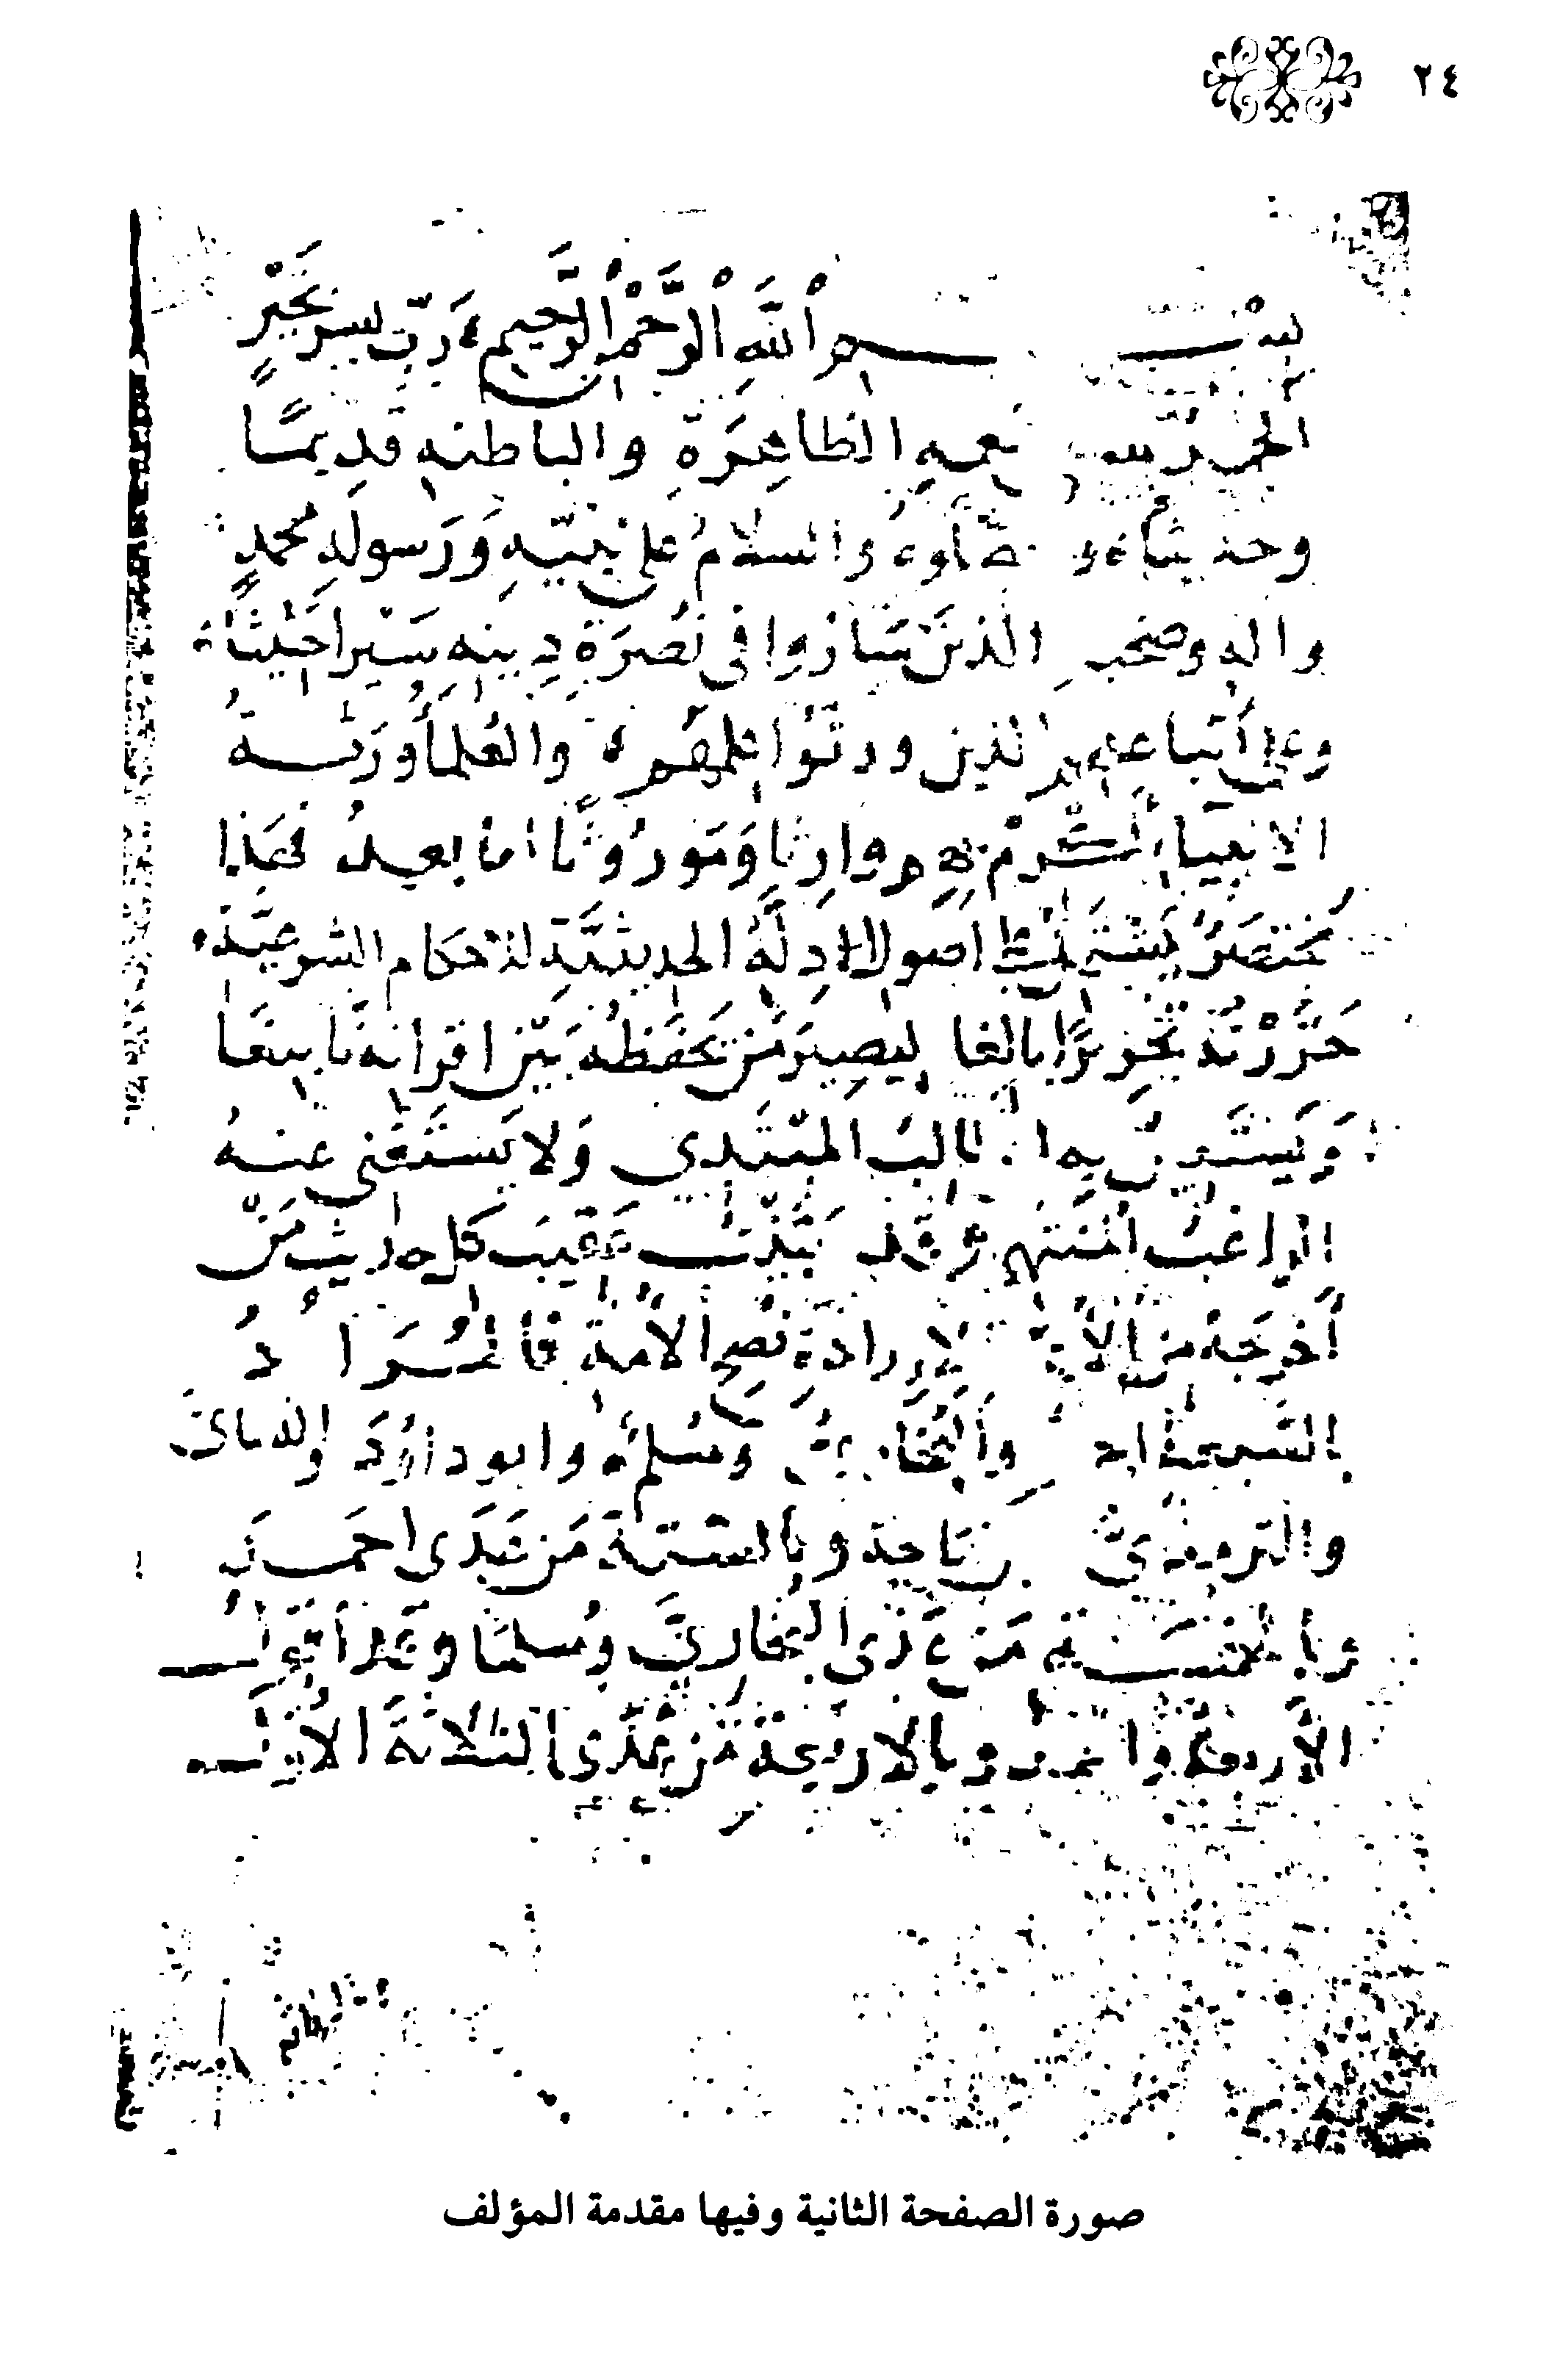 ٢٤
بسم الله الرحمن الرحيم رب يسر بخير
الحمد لله نعمه الظاهرة والباطنه قديمًا
وحديثا والسلامُ على نبيّهِ وَرَسولهِ محمدٍ
واله وصحبه الذين سَارُوا في نُصْرَةِ دِينهِ سَيْرا حَثيثًا
وعلى أتباعهم الذين ورثوا علمهم والعُلمَأُ وَرَثَةُ
الانبياء أكرم بهم وارِثًا وَمَورُوثًا اما بعدُ فهذا
مختصرٌ يَشتملُ على اصول الادلّةِ الحديثيَّةِ للاحكام الشرعيَّة
حَرَّرْتُه تحريرًا بالغا ليصيرَ مَن يحفَظُه بَيْن اقرانه نابغًا
وَيَستَعينُ به الطالبُ المُبْتَدِي وَلا يَستَغْنى عنهُ
الراغبُ المنتهي وقد بيّنتُ عَقيبَ كل حديثٍ مَنْ
أخرجَهُ من الأئمة لإرادَةِ نُصحِ الأمةِ فالمُرَادُ
بالسَّبعة احمد وَالبُخَاريُّ وَمُسلمٌ وابو داوُدَ والنسائى
والترمذيُّ وابن مَاجة وبالستّة مَن عَدَى احمَدَ
وبالخمسَةِ مَن عَدَى البُخاريَّ ومُسلمًا وقد أقولُ
الأربعةُ واحمد وبالاربعة مَن عَدَى الثلاثَةَ الأُوَلَ
صورة الصفحة الثانية وفيها مقدمة المؤلف